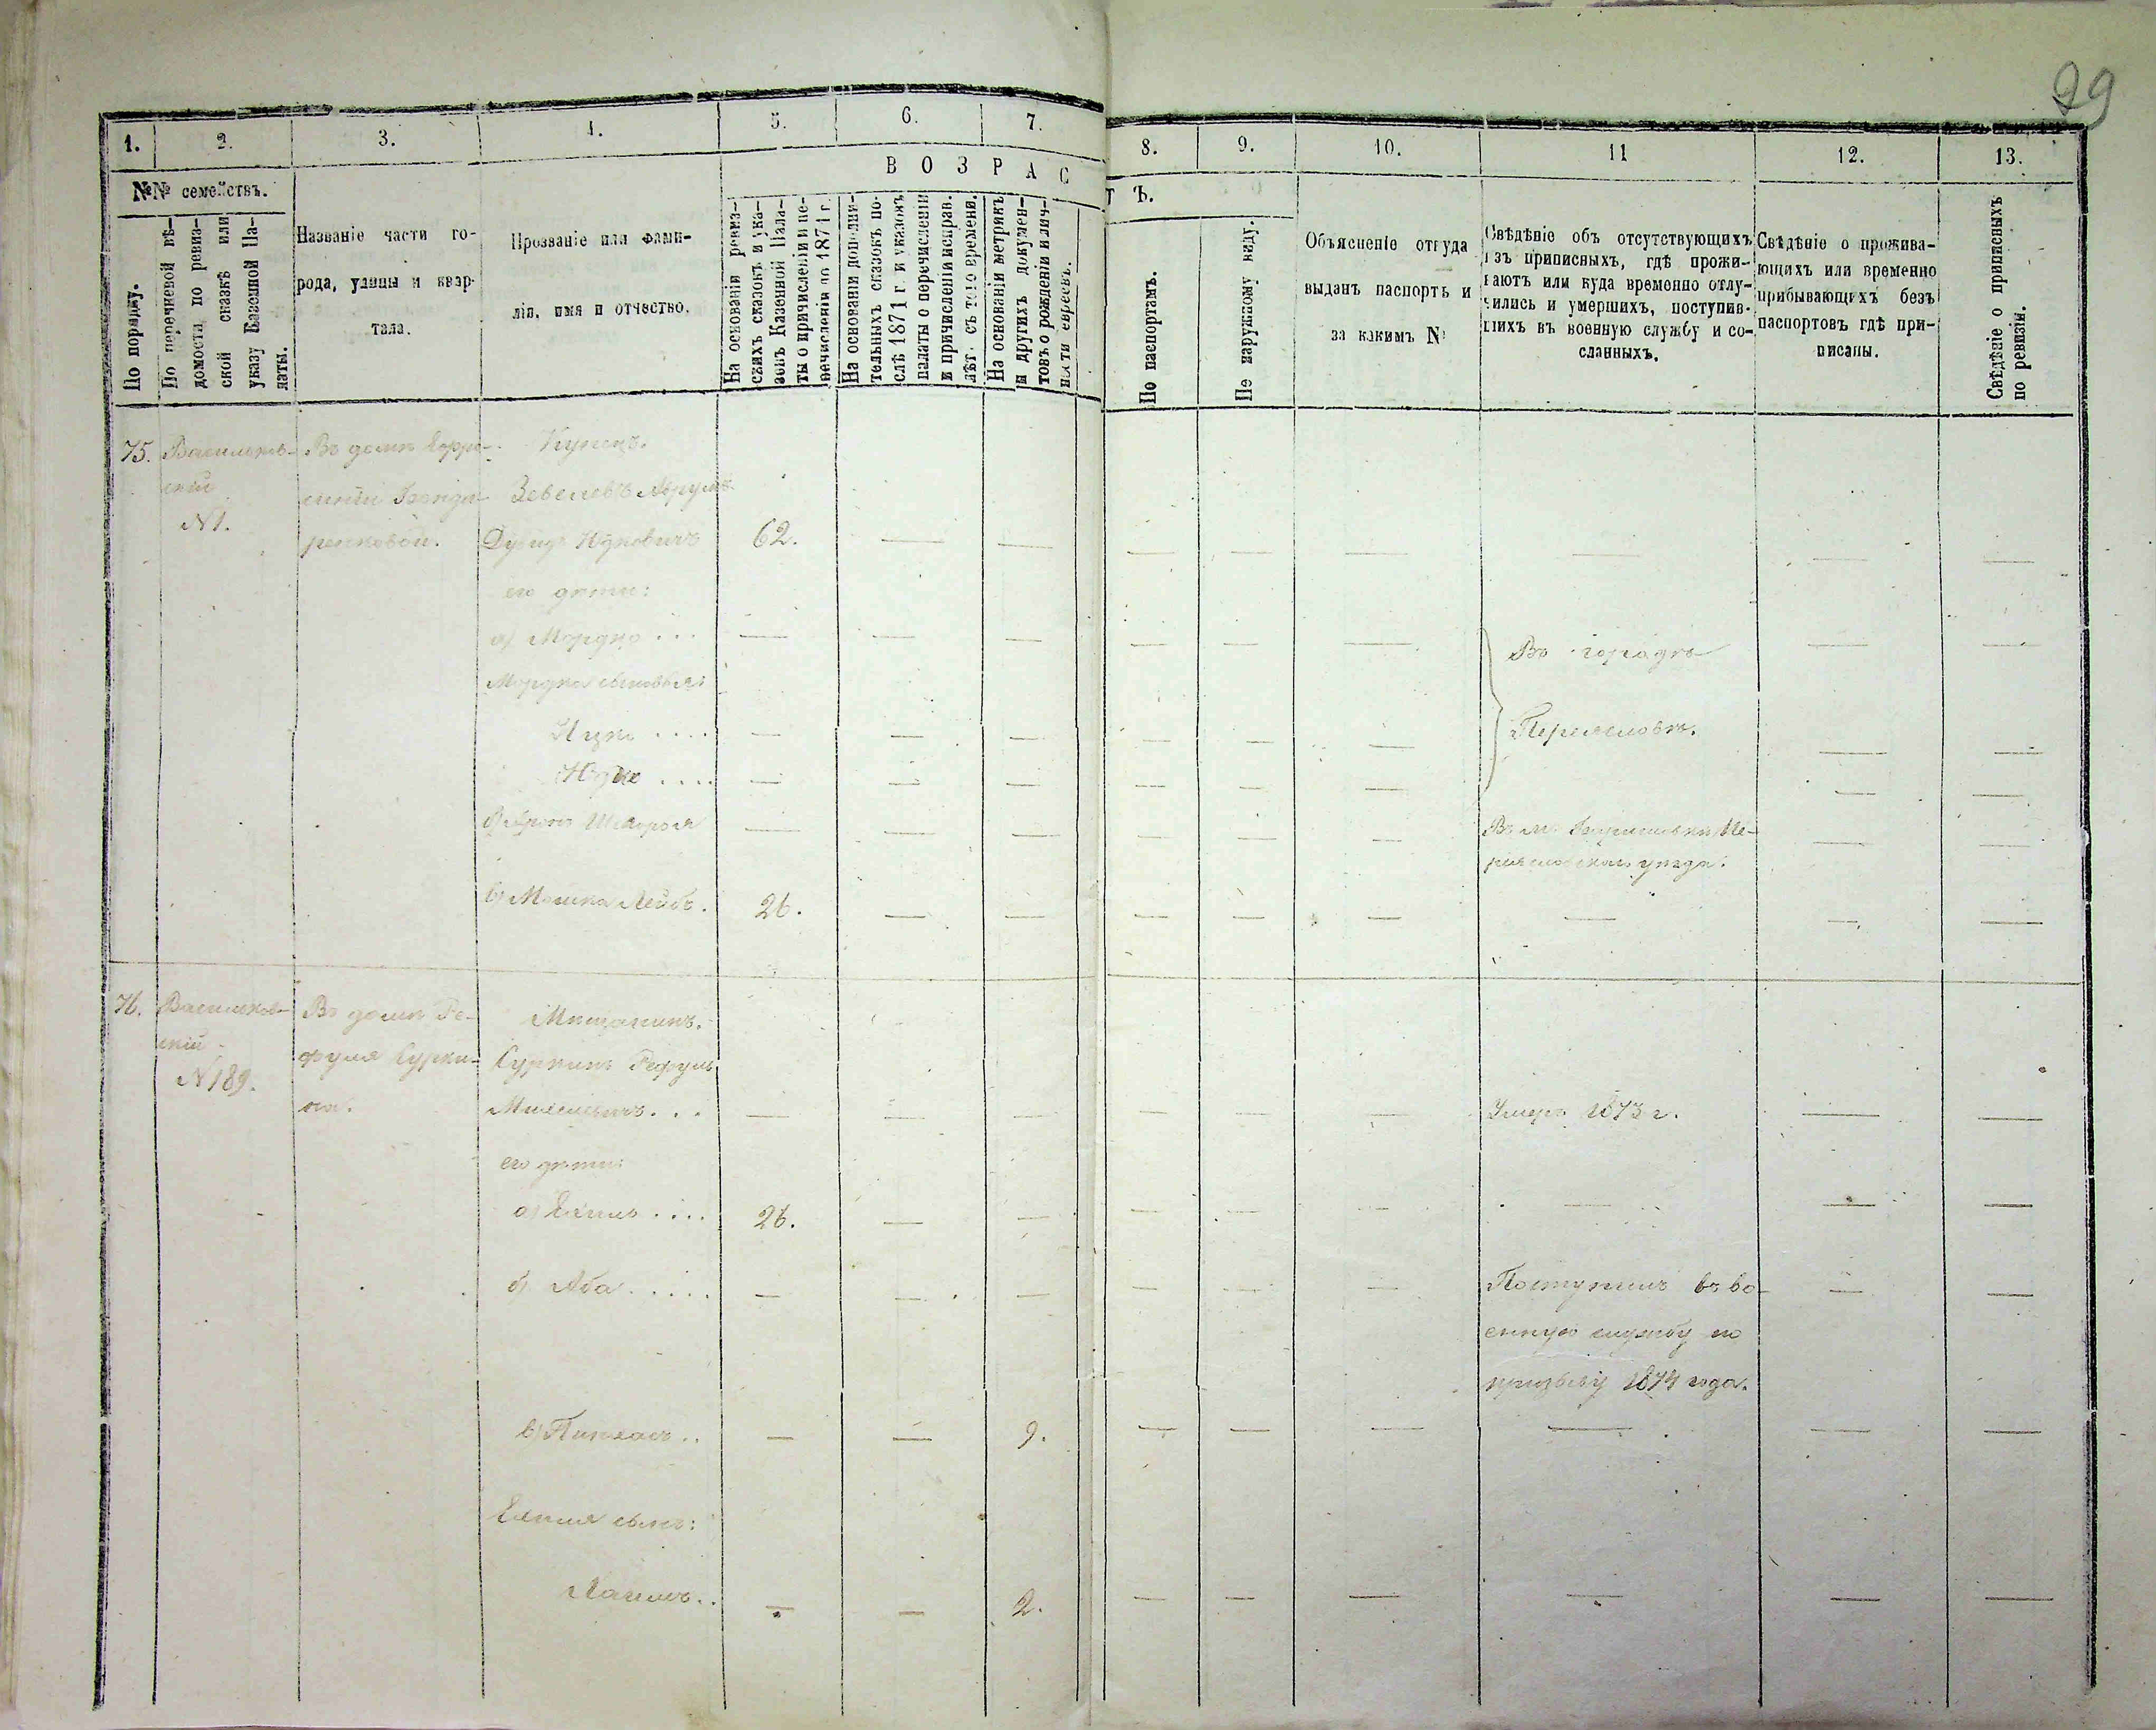 29
1.
2.
3.
4.
5.
6.
7.
8.
9.
10.
11
12.
13.
№№ семействъ.
По порядку.
По перечневой вѣ-
домости по ревиз-
ской сказкѣ или
указу Казенной Па-
латы.
Названіе части го-
рода, улицы и квар-
тала.
Прозваніе или фами-
лія, имя и отчество.
В О З Р А С
Т Ъ.
На основаніи ревиз-
скихъ сказокъ и ука-
зовъ Казенной Пала-
ты о причисленіи и пе-
речисленіи до 1871 г.
На основаніи дополни-
тельныхъ сказокъ по-
слѣ 1871 г. и указовъ
палаты о перечисленіи
и причисленіи исправ.
лѣт. съ того времени.
На основаніи метрикъ
и другихъ докумен-
товъ о рожденіи и лич-
ности евреевъ.
По паспортамъ.
По наружному виду.
Объясненіе откуда
выданъ паспортъ и
за какимъ №
Свѣдѣніе объ отсутствующихъ
изъ приписныхъ, гдѣ прожи-
ваютъ или куда временно отлу-
чились и умершихъ, поступив-
шихъ въ военную службу и со-
сланныхъ.
Свѣдѣніе о прожива-
ющихъ или временно
прибывающихъ безъ
паспортовъ гдѣ при-
писаны.
Свѣдѣніе о приписныхъ
по ревизіи.
75.
Васильков-
скій
№1.
Въ домѣ
Купецъ.
Зевелевъ Абрумъ
Дувидъ Юдковичъ
62.
его дѣти:
а) Мордко ...
Въ городѣ
Мордка сыновья:
Ицко ....
Переяславѣ.
Юдко ....
Шмарья
Въ м. Пе-
реяславскомъ уѣздѣ.
в) Мошко Лейбъ.
26.
76.
Васильков-
скій
№189.
Въ домѣ Ре-
фуля Сурки-
на.
Мѣщанинъ.
Суркинъ Рефулъ
...
Умеръ 1873 г.
его дѣти:
а) Ехиль ....
26.
б) Аба .....
Поступилъ въ во-
енную службу по
призыву 1874 года.
в) Пинхасъ ..
9.
Ехиля сынъ:
Хаимъ..
2.